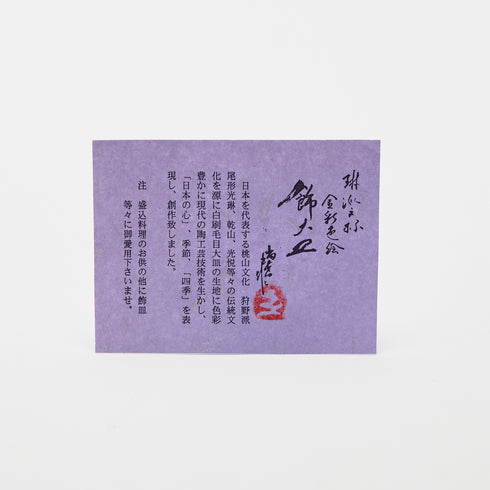 琳派文様
金彩色絵
飾大皿
日本を代表する桃山文化　狩野派
尾形光琳、乾山、光悦等々の伝統文
化を源に白刷毛目大皿の生地に色彩
豊かに現代の陶工芸技術を生かし、
「日本の心」、季節、「四季」を表
現し、創作致しました。
注　盛込料理のお供の他に飾皿
等々に御愛用下さいませ。